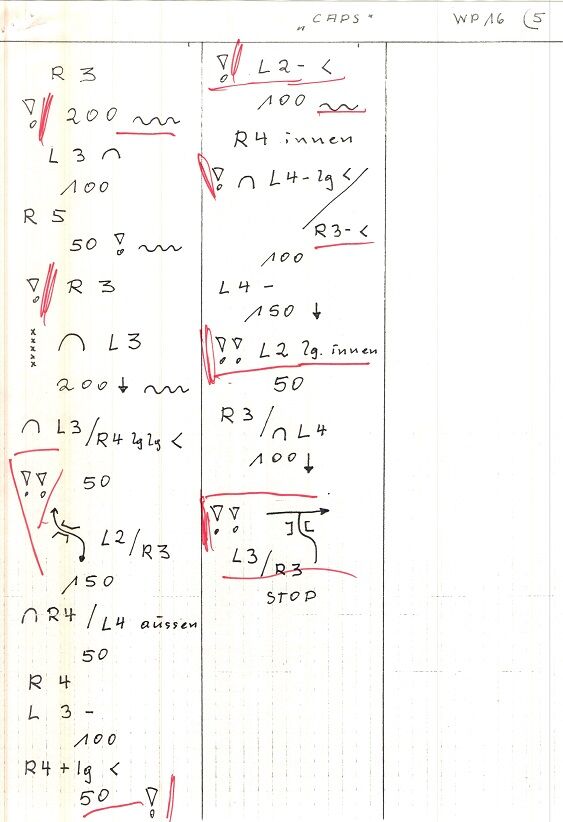 „CAPS"
WP 16 (5
R 3
200
L 3
100
R 5
50
R 3
L 3
200 ↓
L3/R4 lg lg <
50
L2/R3
150
R4/L4 aüssen
50
R 4
L 3 -
100
R4+lg <
50
L2- <
100
R4 innen
L4-lg <
R3- <
100
L4 -
150 ↓
L2 lg. innen
50
R3/L4
100 ↓
L3/R3
STOP